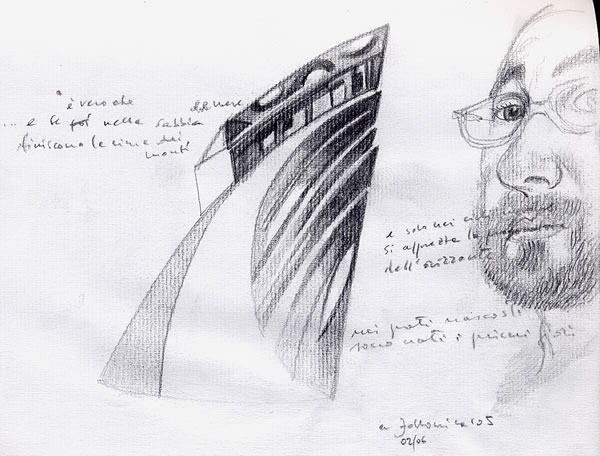 è vero che
... e se poi nella sabbia
finiscono le cime dei
monti
e solo nei
si apprezza la
dell'orizzonte
nei prati nascosti
sono nati i primi fiori
a
02/06